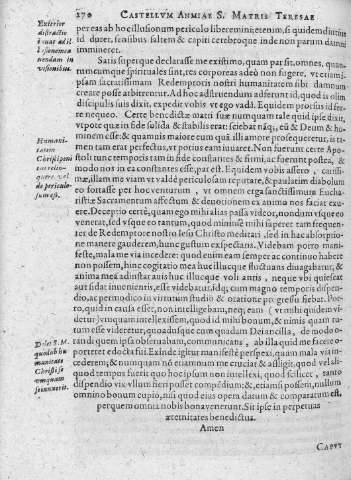 270 CASTELLVM ANIMAE S. MATRIS TERESAE
Exterior
distractio
visionibus.
Humani-
tatem
Christi
de periculosum
Dolet S. M.
quod ab humanitate
Christi se
umquam
per eas ab hoc illusionum periculo liberemini; etenim, si quidem diutius
id duret, sensibus saltem & capiti cerebroque inde non parum damni
immineret.
Satis superque declarasse me existimo, quam par sit, omnes, quan-
tumcumque spirituales sint, res corporeas adeo non fugere, vt etiam ipsam
sacratissimam Redemptoris nostri humanitatem sibi damnum
creare posse arbitrentur. Ad hoc adstruendum adferunt id, quod is olim
discipulis suis dixit, expedit vobis vt ego vada. Equidem prorsus id ferre
nequeo. Certe benedictae matri suae numquam tale quid ipse dixit,
vt pote quae in fide solida & stabilis erat: sciebat nāq;, eū & Deum & ho-
minem esse: & quamuis maiore eum quā illi amore prosequeretur, ita ta-
men tam erat perfectus, vt potius eam iuuaret. Non fuerunt certe Apo-
stoli tunc temporis tam in fide constantes & firmi, ac fuerunt postea, &
modo nos in ea constantes esse, par est. Equidem vobis assero, carissi-
mae, illam me viam vt valde periculosam reputare, & paulatim diabolum
eo fortasse per hoc venturum, vt omnem erga sanctissimum Eucha-
ristiae Sacramentum affectum & deuotionem ex animo nos faciat exue-
re. Deceptio certe, quam ego mihi alias passa videor, nondum vsque eo
venerat, sed vsque eo tantum, quod minime mihi saperet tam frequen-
ter de Redemptore nostro Iesu Christo meditari, sed in hac absorptio-
ne manere gauderem, hunc gustum exspectans. Videbam porro mani-
feste, mala me via incedere: quod enim eam semper ac continuo habere
non possem, hinc cogitatio mea huc illucque fluctuans diuagabatur, &
anima mea ad instar auis huc illucque voli antis, neque vbi quiescat
aut sidat inuenientis, esse videbatur, idq; cum magno temporis dispen-
dio, ac permodico in virtutum studio & oratione progressu fiebat. Por-
ro, quid in causa esset, non intelligebam, neq; eam (vt mihi quidem vi-
detur) vmquam intellexissem, quod id mihi bonum, & nimis quam tu-
tum esse videretur; quoadusque cum quadam Dei ancilla, de modo o-
randi quem ipsa obseruabam, communicans, ab illa quid me facere o-
porteret edocta fui. Exinde igitur manifeste perspexi, quam mala via in-
cederem; & numquam nō etiamnum me cruciat & affligit, quod vel ali-
quod tempus fuerit quo hoc ipsum non intellexi, quod scilicet, tanto
dispendio vix vllum fieri posset compēdium: &, etiamsi possem, nullum
omnino bonum cupio, nisi quod eius opera datum & comparatum est,
per quem omnia nobis bona venerunt. Sit ipse in perpetuas
aeternitates benedictus.
Amen
CAPVT